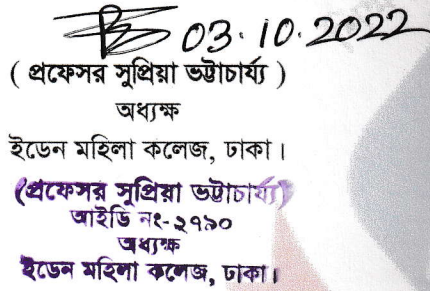 03.10.2022
( প্রফেসর সুপ্রিয়া ভট্টাচার্য্য )
অধ্যক্ষ
ইডেন মহিলা কলেজ, ঢাকা।
(প্রফেসর সুপ্রিয়া ভট্টাচার্য্য)
আইডি নং-২৭৯০
অধ্যক্ষ
ইডেন মহিলা কলেজ, ঢাকা।